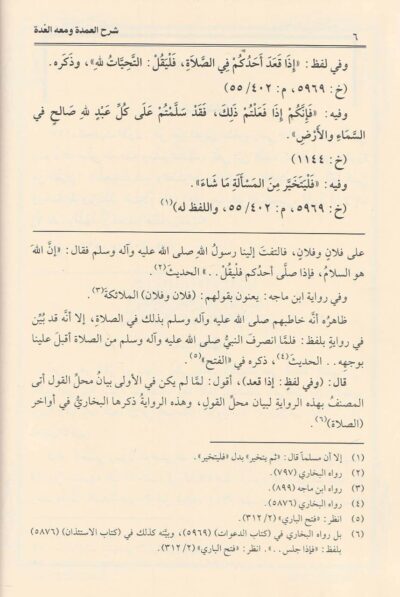 ٦
شرح العمدة ومعه العُدة
وفي لفظ: «إِذَا قَعَدَ أَحَدُكُمْ فِي الصَّلاَةِ، فَلْيَقُلْ: التَّحِيَّاتُ للهِ»، وذَكَره.
(خ: ٥٩٦٩، م: ٤٠٢/ ٥٥)
وفيه: «فَإِنَّكُمْ إِذَا فَعَلْتُمْ ذَلِكَ، فَقَدْ سَلَّمْتُمْ عَلَى كُلِّ عَبْدٍ للهِ صَالِحٍ فِي
السَّمَاءِ والأَرْضِ».
(خ: ١١٤٤)
وفيه: «فَلْيَتَخَيَّرْ مِنَ المَسْأَلَةِ مَا شَاءَ».
(خ: ٥٩٦٩، م: ٤٠٢/ ٥٥، واللفظ له)(١)
على فلانٍ وفلانٍ، فالتفتَ إلينا رسولُ اللهِ صلى الله عليه وآله وسلم فقال: «إنَّ اللهَ
هو السلامُ، فإذا صلَّى أحدُكم فلْيقُلْ..» الحديثَ(٢).
وفي رواية ابن ماجه: يعنون بقولهم: (فلان وفلان) الملائكةَ(٣).
ظاهرُه أنَّه خاطبهم صلى الله عليه وآله وسلم بذلك في الصلاةِ، إلا أنَّه قد بُيِّن
في روايةٍ بلفظ: فلمَّا انصرفَ النبيُّ صلى الله عليه وآله وسلم من الصلاة أقبلَ علينا
بوجهِه.. الحديثَ(٤)، ذكره في «الفتح»(٥)
قال: (وفي لفظٍ: إذا قعد)، أقول: لمَّا لم يكن في الأولى بيانُ محلِّ القول أتى
المصنفُ بهذه الروايةِ لبيان محلِّ القولِ، وهذه الروايةُ ذكرها البخاريُّ في أواخر
(الصلاة)(٦)
(١) إلا أن مسلماً قال: «ثم يتخير» بدل «فليتخير».
(٢) رواه البخاري (٧٩٧).
(٣) رواه ابن ماجه (٨٩٩).
(٤) رواه البخاري (٥٨٧٦).
(٥) انظر: «فتح الباري» (٢/ ٣١٢).
(٦) بل رواه البخاري في (كتاب الدعوات) (٥٩٦٩)، وبيَّنه كذلك في (كتاب الاستئذان) (٥٨٧٦)
بلفظ: «فإذا جلس..». انظر: «فتح الباري» (٢/ ٣١٢).